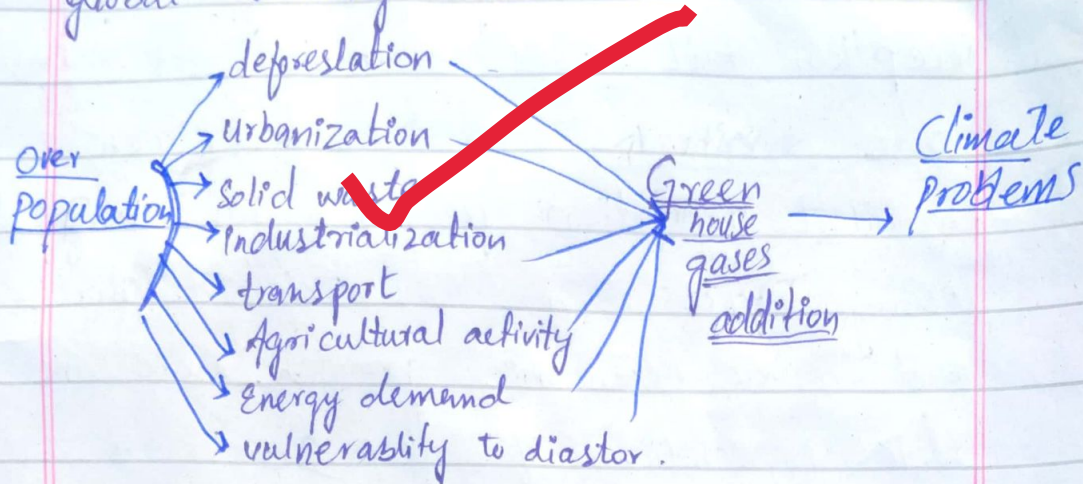 global
deforestation
urbanization
Over
population
Solid waste
Industrialization
transport
Agricultural activity
Energy demand
vulnerablity to diastor.
Green
house
gases
addition
Climate
problems